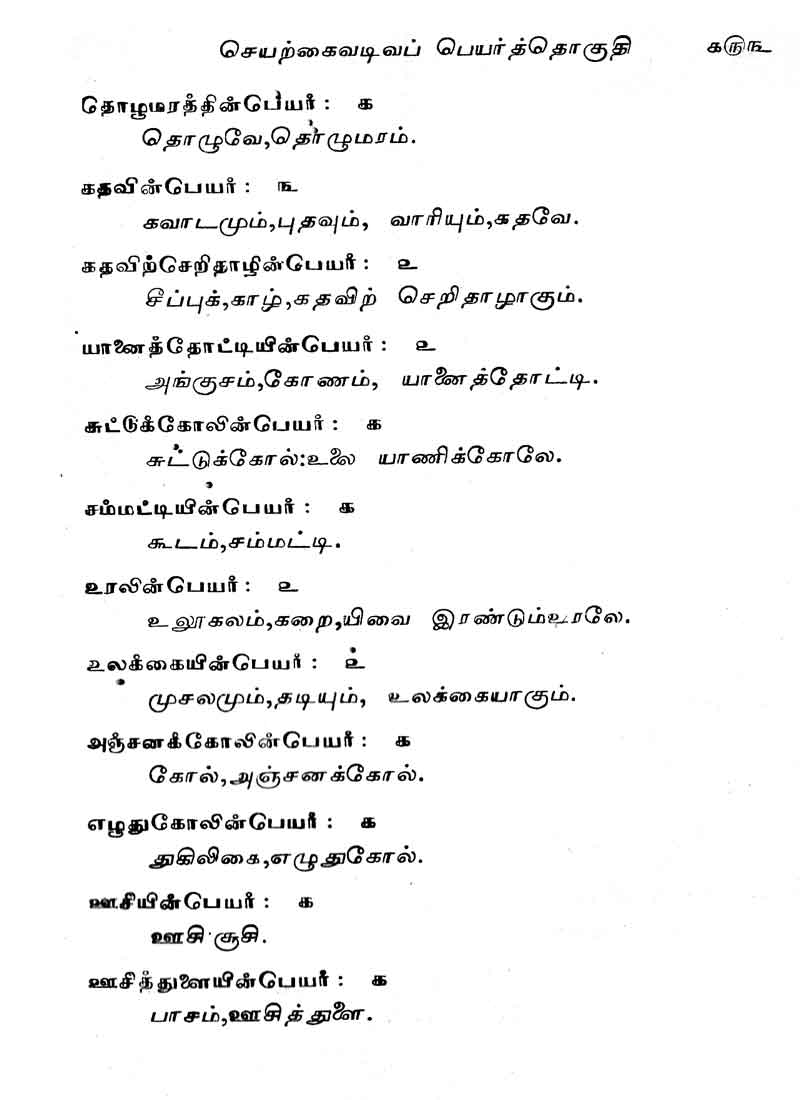 செயற்கைவடிவப் பெயர்த்தொகுதி ௧௫௩
தொழுமரத்தின்பெயர் : ௧
தொழுவே,தொழுமரம்.
கதவின்பெயர் : ௩
கவாடமும்,புதவும், வாரியும்,கதவே.
கதவிற்செறிதாழின்பெயர் : ௨
சீப்புக்,காழ்,கதவிற் செறிதாழாகும்.
யானைத்தோட்டியின்பெயர் : ௨
அங்குசம்,கோணம், யானைத்தோட்டி.
சுட்டுக்கோலின்பெயர் : ௧
சுட்டுக்கோல்:உலை யாணிக்கோலே.
சம்மட்டியின்பெயர் : ௧
கூடம்,சம்மட்டி.
உரலின்பெயர் : ௨
உலூகலம்,கறை,யிவை இரண்டும்உரலே.
உலக்கையின்பெயர் : ௨
முசலமும்,தடியும், உலக்கையாகும்.
அஞ்சனக்கோலின்பெயர் : ௧
கோல்,அஞ்சனக்கோல்.
எழுதுகோலின்பெயர் : ௧
துகிலிகை,எழுதுகோல்.
ஊசியின்பெயர் : ௧
ஊசி சூசி.
ஊசித்துளையின்பெயர் : ௧
பாசம்,ஊசித்துளை.